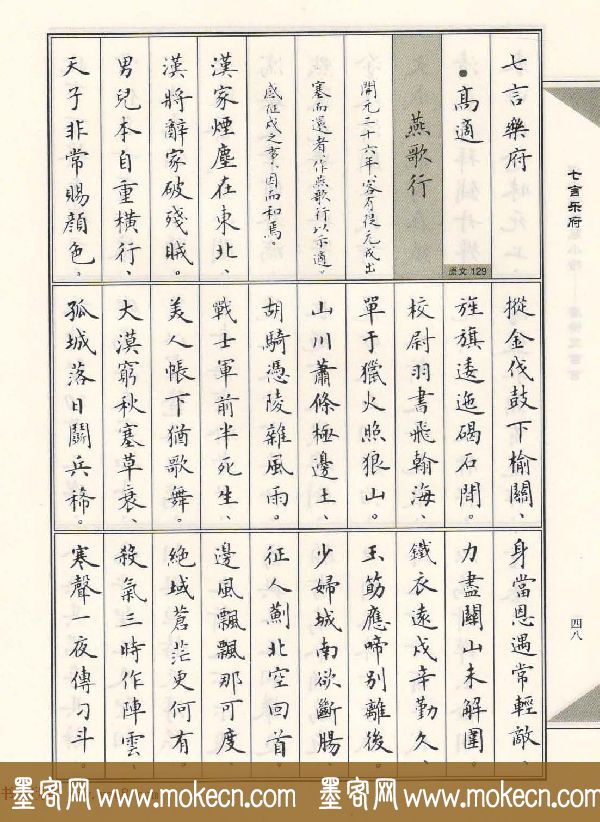 七言樂府
●高適
原文129
燕歌行
開元二十六年、客有從元戎出
塞而還者、作燕歌行以示適。
感征戍之事、因而和焉。
漢家煙塵在東北、
漢將辭家破殘賊。
男兒本自重橫行、
天子非常賜顏色、
摐金伐鼓下榆關、
旌旗逶迤碣石間。
校尉羽書飛翰海、
單于獵火照狼山。
山川蕭條極邊土、
胡騎憑陵雜風雨。
戰士軍前半死生、
美人帳下猶歌舞。
大漠窮秋塞草衰、
孤城落日鬬兵稀。
身當恩遇常輕敵、
力盡關山未解圍。
鐵衣遠戍辛勤久、
玉筯應啼別離後。
少婦城南欲斷腸、
征人薊北空回首。
邊風飄飄那可度、
絕域蒼茫更何有。
殺氣三時作陣雲、
寒聲一夜傳刁斗。
七言乐府
四八
墨客网 www.mokecn.com 墨客网 www.mokecn.com